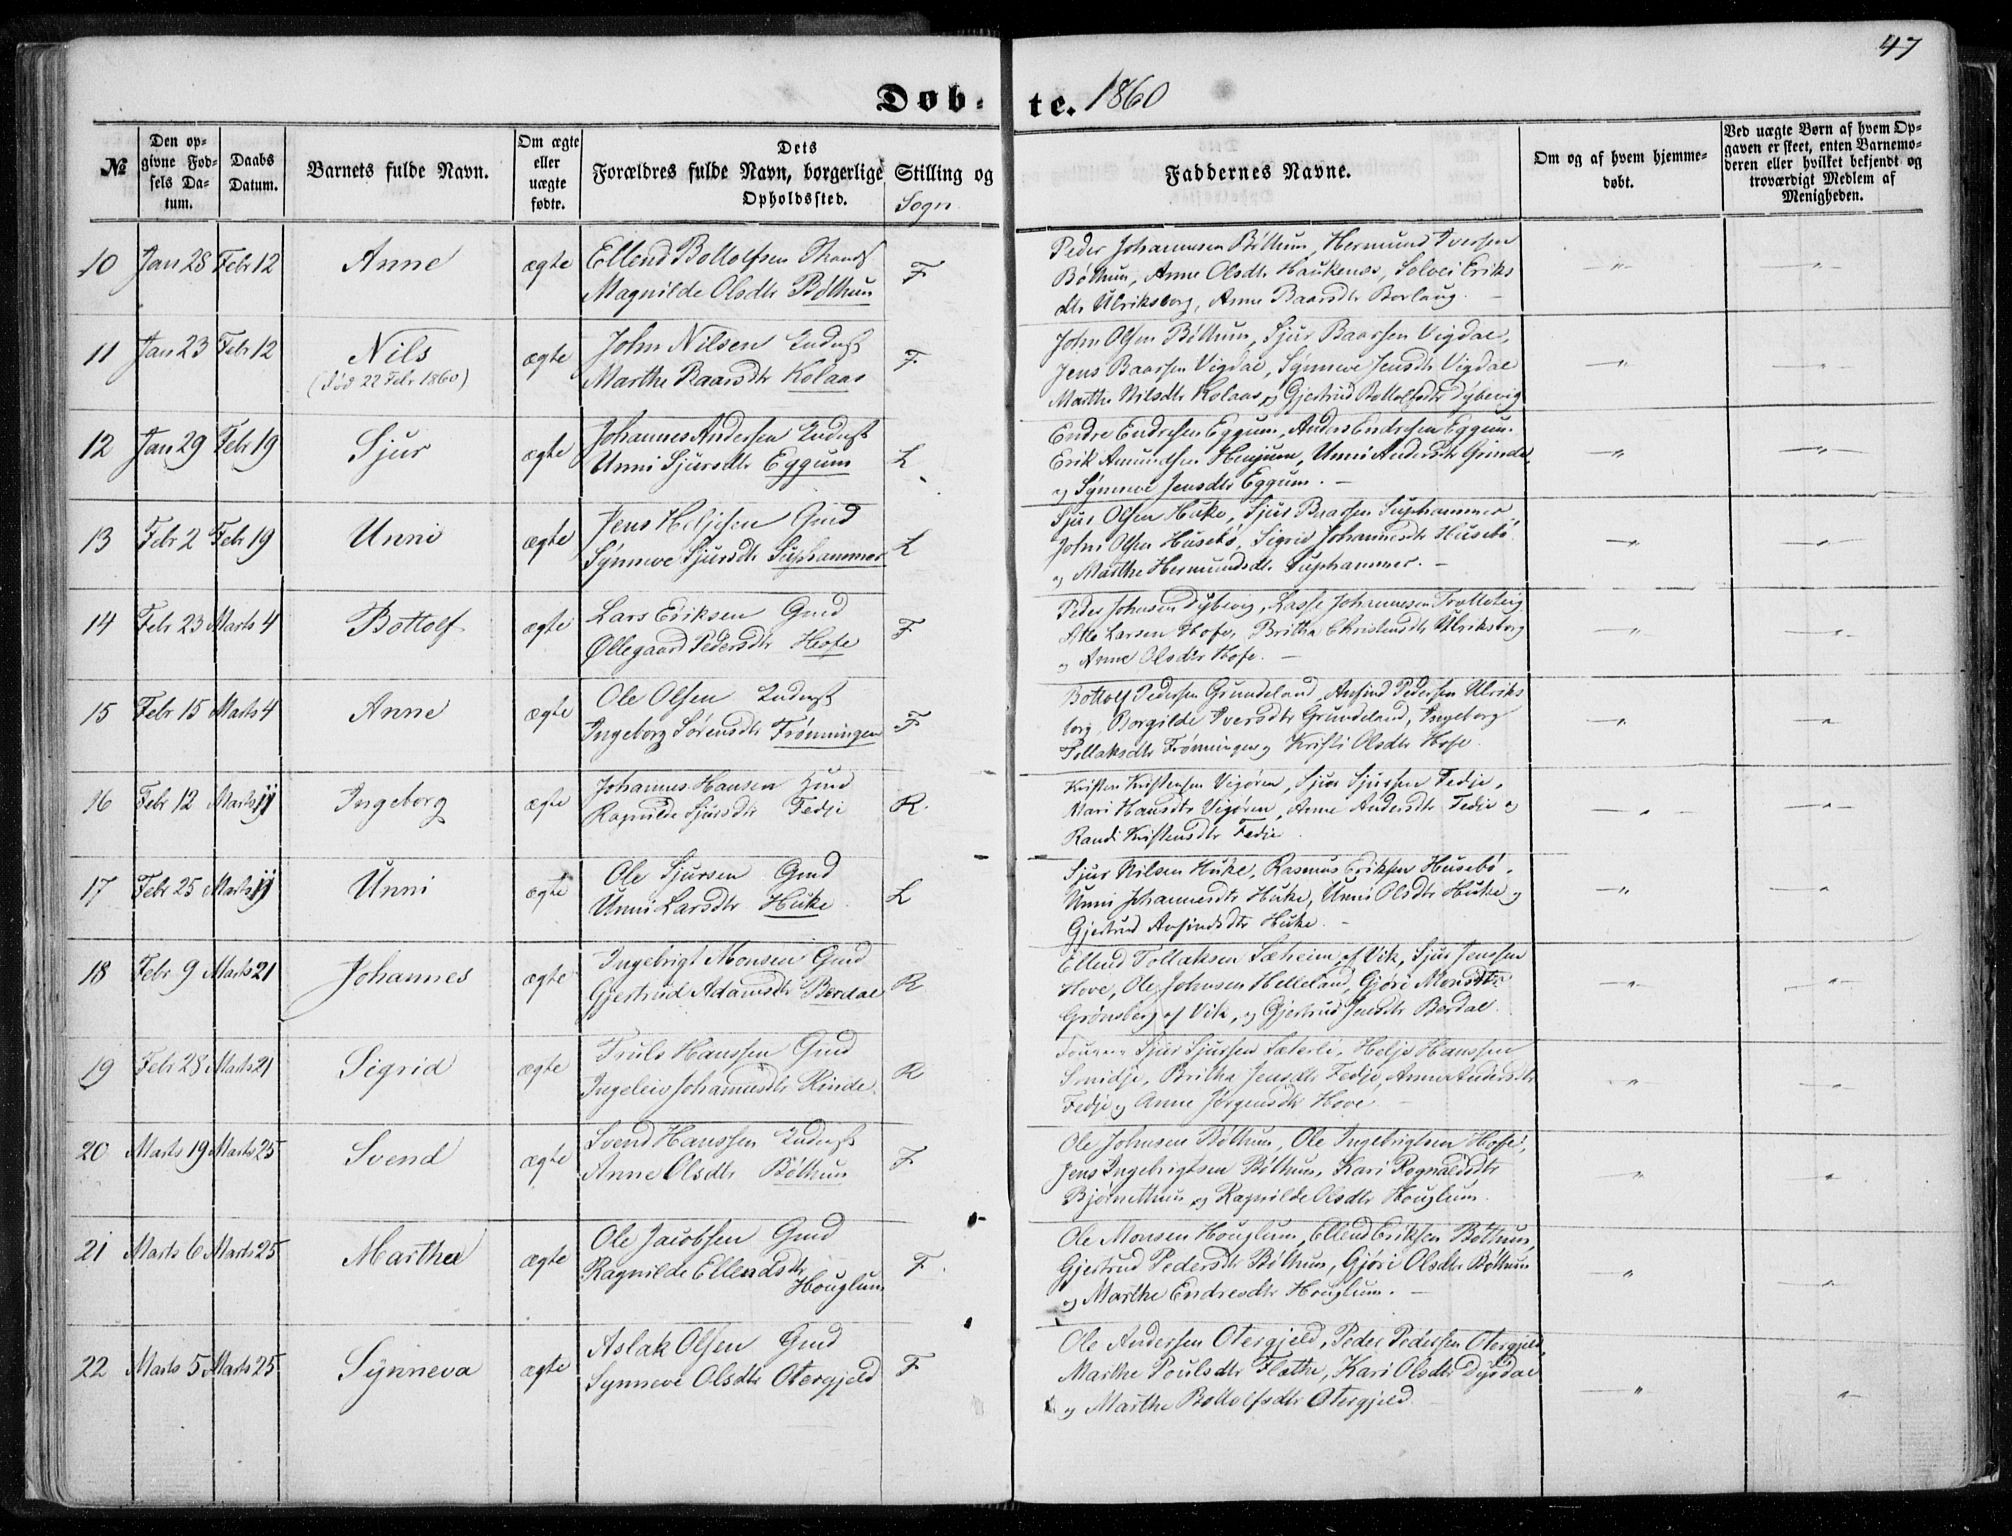 47
Døb-te. 1860
№
Den opgivne Fødsels Datum.
Daabs Datum.
Barnets fulde Navn.
Om ægte eller uægte fødte.
Dets
Forældres fulde Navn, borgerlige Stilling og
Opholdssted.
Sogn
Faddernes Navne.
Om og af hvem hjemmedøbt.
Ved uægte Børn af hvem Opgaven er skeet, enten Barnemoderen eller hvilket bekjendt og troværdigt Medlem af Menigheden.
10 Jan 28 Febr 12 Anne ægte Ellend Bottolfsen Strand F
Magnilde Olsdtr Bøthun
Peder Johannesen Bøthun, Hermund Iversen
Bøthun, Anne Olsdtr Haukenæs, Solvei Eriks
dtr Ulriksborg, Anne Baarsdtr Borlaug. -
11 Jan 23 Febr 12 Nils ægte John Nilsen Inderst F
(død 22 Febr 1860)
Marthe Baarsdtr Kolaas
John Olsen Bøthum, Sjur Baarsen Vigdal,
Jens Baarsen Vigdal, Synneve Jensdtr Vigdal
Marthe Nilsdtr Kolaas og Gjertrud Bottolfsdtr Dybevig
12 Jan 29 Febr 19 Sjur ægte Johannes Andersen Inderst L
Unni Sjursdtr Eggum
Endre Endresen Eggum, Anders Endresen Eggum.
Erik Amundsen Henjum, Unni Andersdtr Grinde,
og Synneve Jensdtr Eggum. -
13 Febr 2 Febr 19 Unni ægte Jens Heljesen Gmd L
Synneve Sjursdtr Suphammer
Sjur Olsen Huke, Sjur Baarsen Suphammer,
John Olsen Husebø, Sigrid Johannesdtr Husebø
og Marthe Hermundsdtr Suphammer. -
14 Febr 23 Marts 4 Bottolf ægte Lars Eriksen Gmd F
Øllegaard Pedersdtr Hofe
Peder Johnsen Dybevig, Lasse Johannesen Trolleteig
Atle Larsen Hofe, Britha Christensdtr Ulriksborg
og Anne Olsdtr Hofe. -
15 Febr 15 Marts 4 Anne ægte Ole Olsen Inderst F
Ingeborg Sørensdtr Frønningen
Bottolf Pedersen Grundeland, Anfind Pedersen Ulriks
borg, Borgilde Iversdtr Grundeland, Ingeborg
Tollaksdtr Frønningen og Kristi Olsdtr Hofe.
16 Febr 12 Marts 11 Ingeborg ægte Johannes Hansen Huusd R.
Ragnilde Sjursdtr Fedje
Kristen Kristensen Vigøren, Sjur Sjursen Fedje,
Mari Hansdtr Vigøren, Anne Andersdtr Fedje og
Randi Kristensdtr Fedje.
17 Febr 25 Marts 11 Unni ægte Ole Sjursen Gmd L
Unni Larsdtr Huke
Sjur Nilsen Huke, Rasmus Eriksen Husebø,
Unni Johannesdtr Huke, Unni Olsdtr Huke og
Gjertrud Anfindsdtr Huke. -
18 Febr 9 Marts 21 Johannes ægte Ingebrigt Monsen Gmd R
Gjertrud Adamsdtr Berdal
Ellend Tollaksen Sæheim af Vik, Sjur Jenssen
Hove, Ole Johnsen Helleland, Gjøri Monsdtr
Grønsberg af Vik, og Gjertrud Jensdtr Berdal.
19 Febr 28 Marts 21 Sigrid ægte Truls Hanssen Gmd R
Ingeleiv Johannesdtr Rinde
Sjur Sjursen Sæterli, Helje Hanssen
Smidje, Britha Jensdtr Fedje, Anne Andersdtr
Fedje og Anne Jørgensdtr Hove.
20 Marts 19 Marts 25 Svend ægte Svend Hanssen Inderst F
Anne Olsdtr Bøthun
Ole Johnsen Bøthun, Ole Ingebrigtsen Hofe,
Jens Ingebrigtsen Bøthun, Kari Rognaldsdtr
Bjørnethun og Ragnilde Olsdtr Houglum.
21 Marts 6 Marts 25 Martha ægte Ole Jacobsen Gmd F.
Ragnilde Ellendsdtr
Houglum
Ole Monsen Houglum, Ellend Eriksen Bøthun,
Gjertrud Pedersdtr Bøthun, Gjøri Olsdtr Bøthun
og Marthe Endresdtr Houglum. -
22 Marts 5 Marts 25 Synneva ægte Aslak Olsen Gmd F
Synneve Olsdtr Otergjeld
Ole Andersen Otergjeld, Peder Pedersen Otergjeld,
Marthe Poulsdtr Flathe, Kari Olsdtr Dysdal
og Marthe Bottolfsdtr Otergjeld